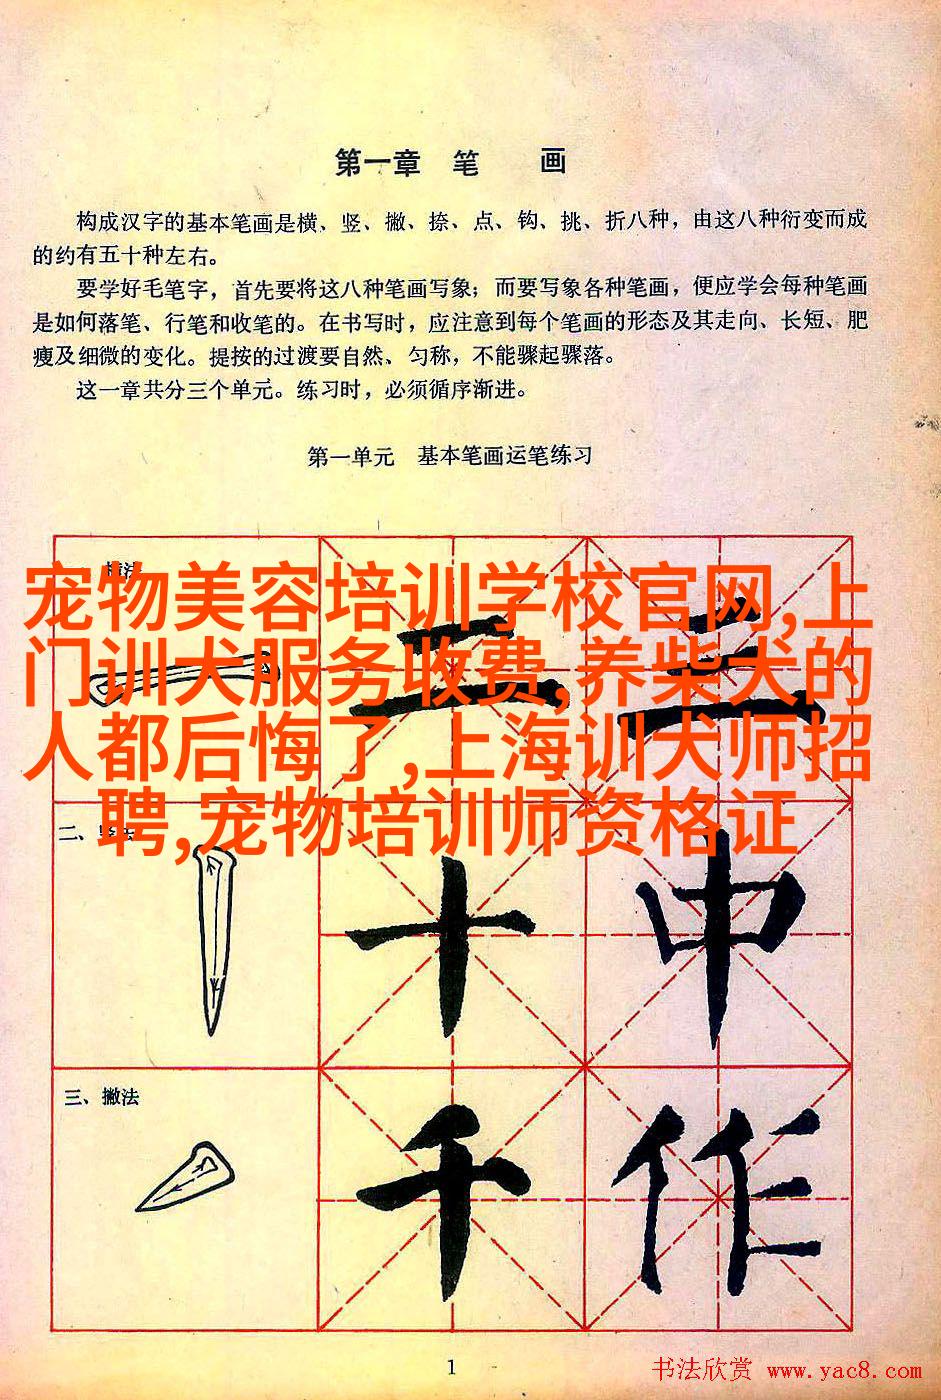 第一章 笔 画
构成汉字的基本笔画是横、竖、撇、捺、点、钩、挑、折八种，由这八种衍变而成
的约有五十种左右。
要学好毛笔字，首先要将这八种笔画写象；而要写象各种笔画，便应学会每种笔画
是如何落笔、行笔和收笔的。在书写时，应注意到每个笔画的形态及其走向、长短、肥
瘦及细微的变化。提按的过渡要自然、匀称，不能骤起骤落。
这一章共分三个单元。练习时，必须循序渐进。
第一单元 基本笔画运笔练习
宠物美容培训学校官网,上
门训犬服务收费,养柴犬的
人都后悔了,上海训犬师招
聘,宠物培训师资格证
三 三
二、
十 中
三、撇法
千 作
1
书法欣赏 www.yac8.com